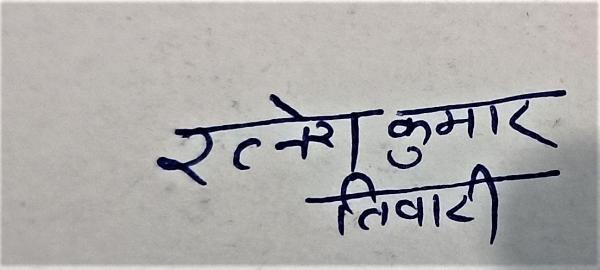 रत्नेश कुमार
तिवारी